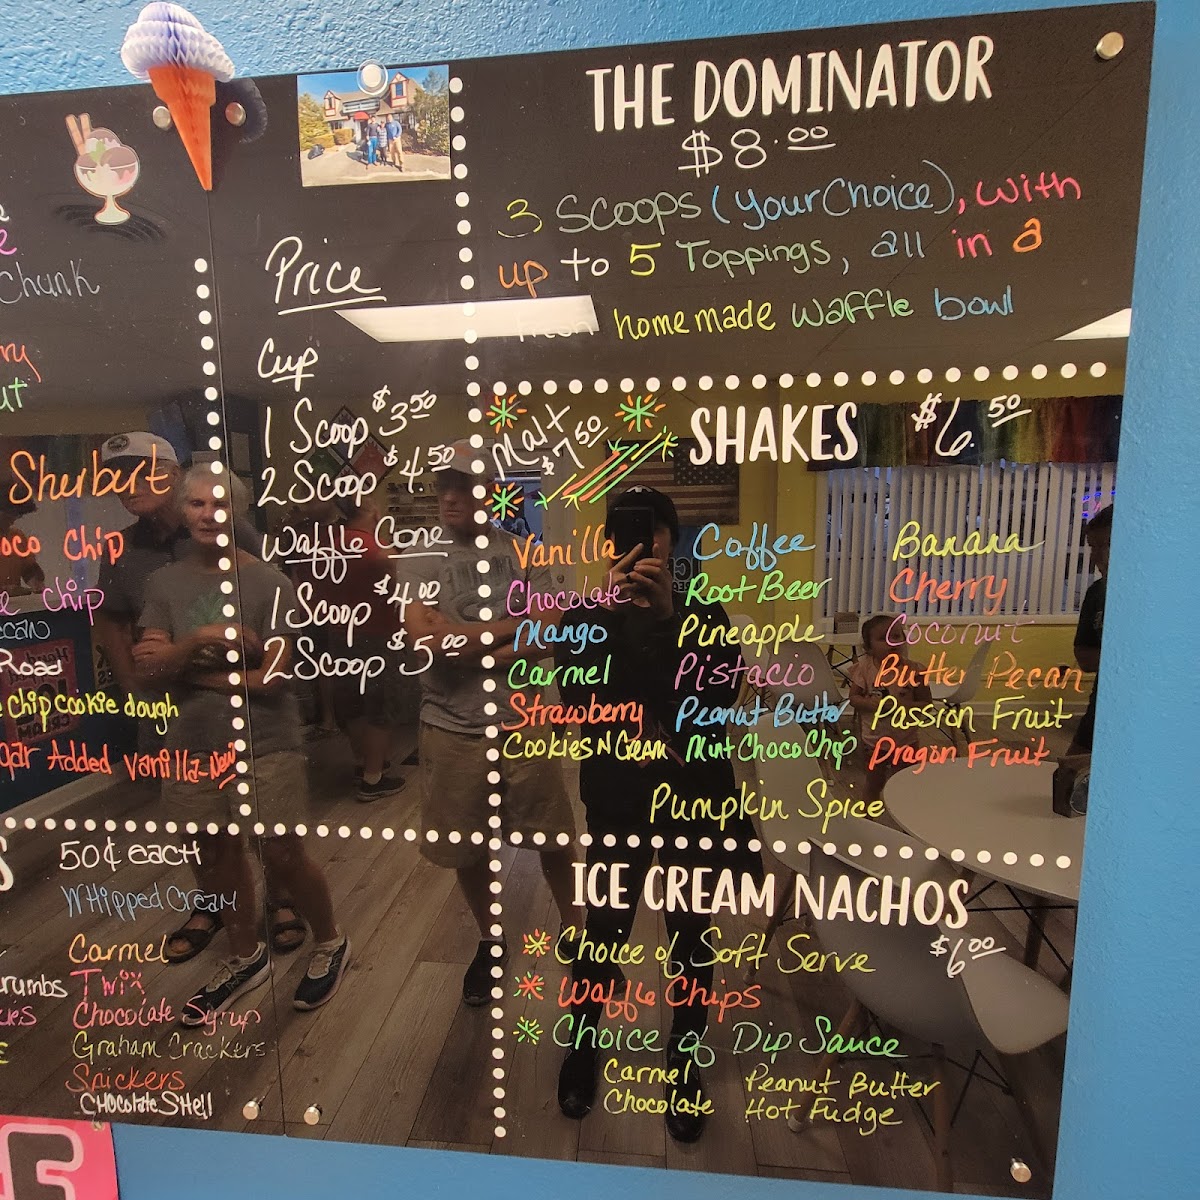 Chunk
Sherbert
Choco Chip
chip
Road
chip cookie dough
Added Vanilla-New
50¢ each
Whipped Cream
Carmel
Crumbs Twix
Chocolate Syrup
Graham Crackers
Snickers
Chocolate Shell
Price
Cup
1 Scoop $3.50
2 Scoop $4.50
Waffle Cone
1 Scoop $4.00
2 Scoop $5.00
THE DOMINATOR
$8.00
3 Scoops (Your Choice), with
up to 5 Toppings, all in a
homemade waffle bowl
Malt $7.50
SHAKES $6.50
Vanilla Coffee Banana
Chocolate Root Beer Cherry
Mango Pineapple Coconut
Carmel Pistacio Butter Pecan
Strawberry Peanut Butter Passion Fruit
Cookies N Cream Mint Choco Chip Dragon Fruit
Pumpkin Spice
ICE CREAM NACHOS
$6.00
Choice of Soft Serve
Waffle Chips
Choice of Dip Sauce
Carmel Peanut Butter
Chocolate Hot Fudge